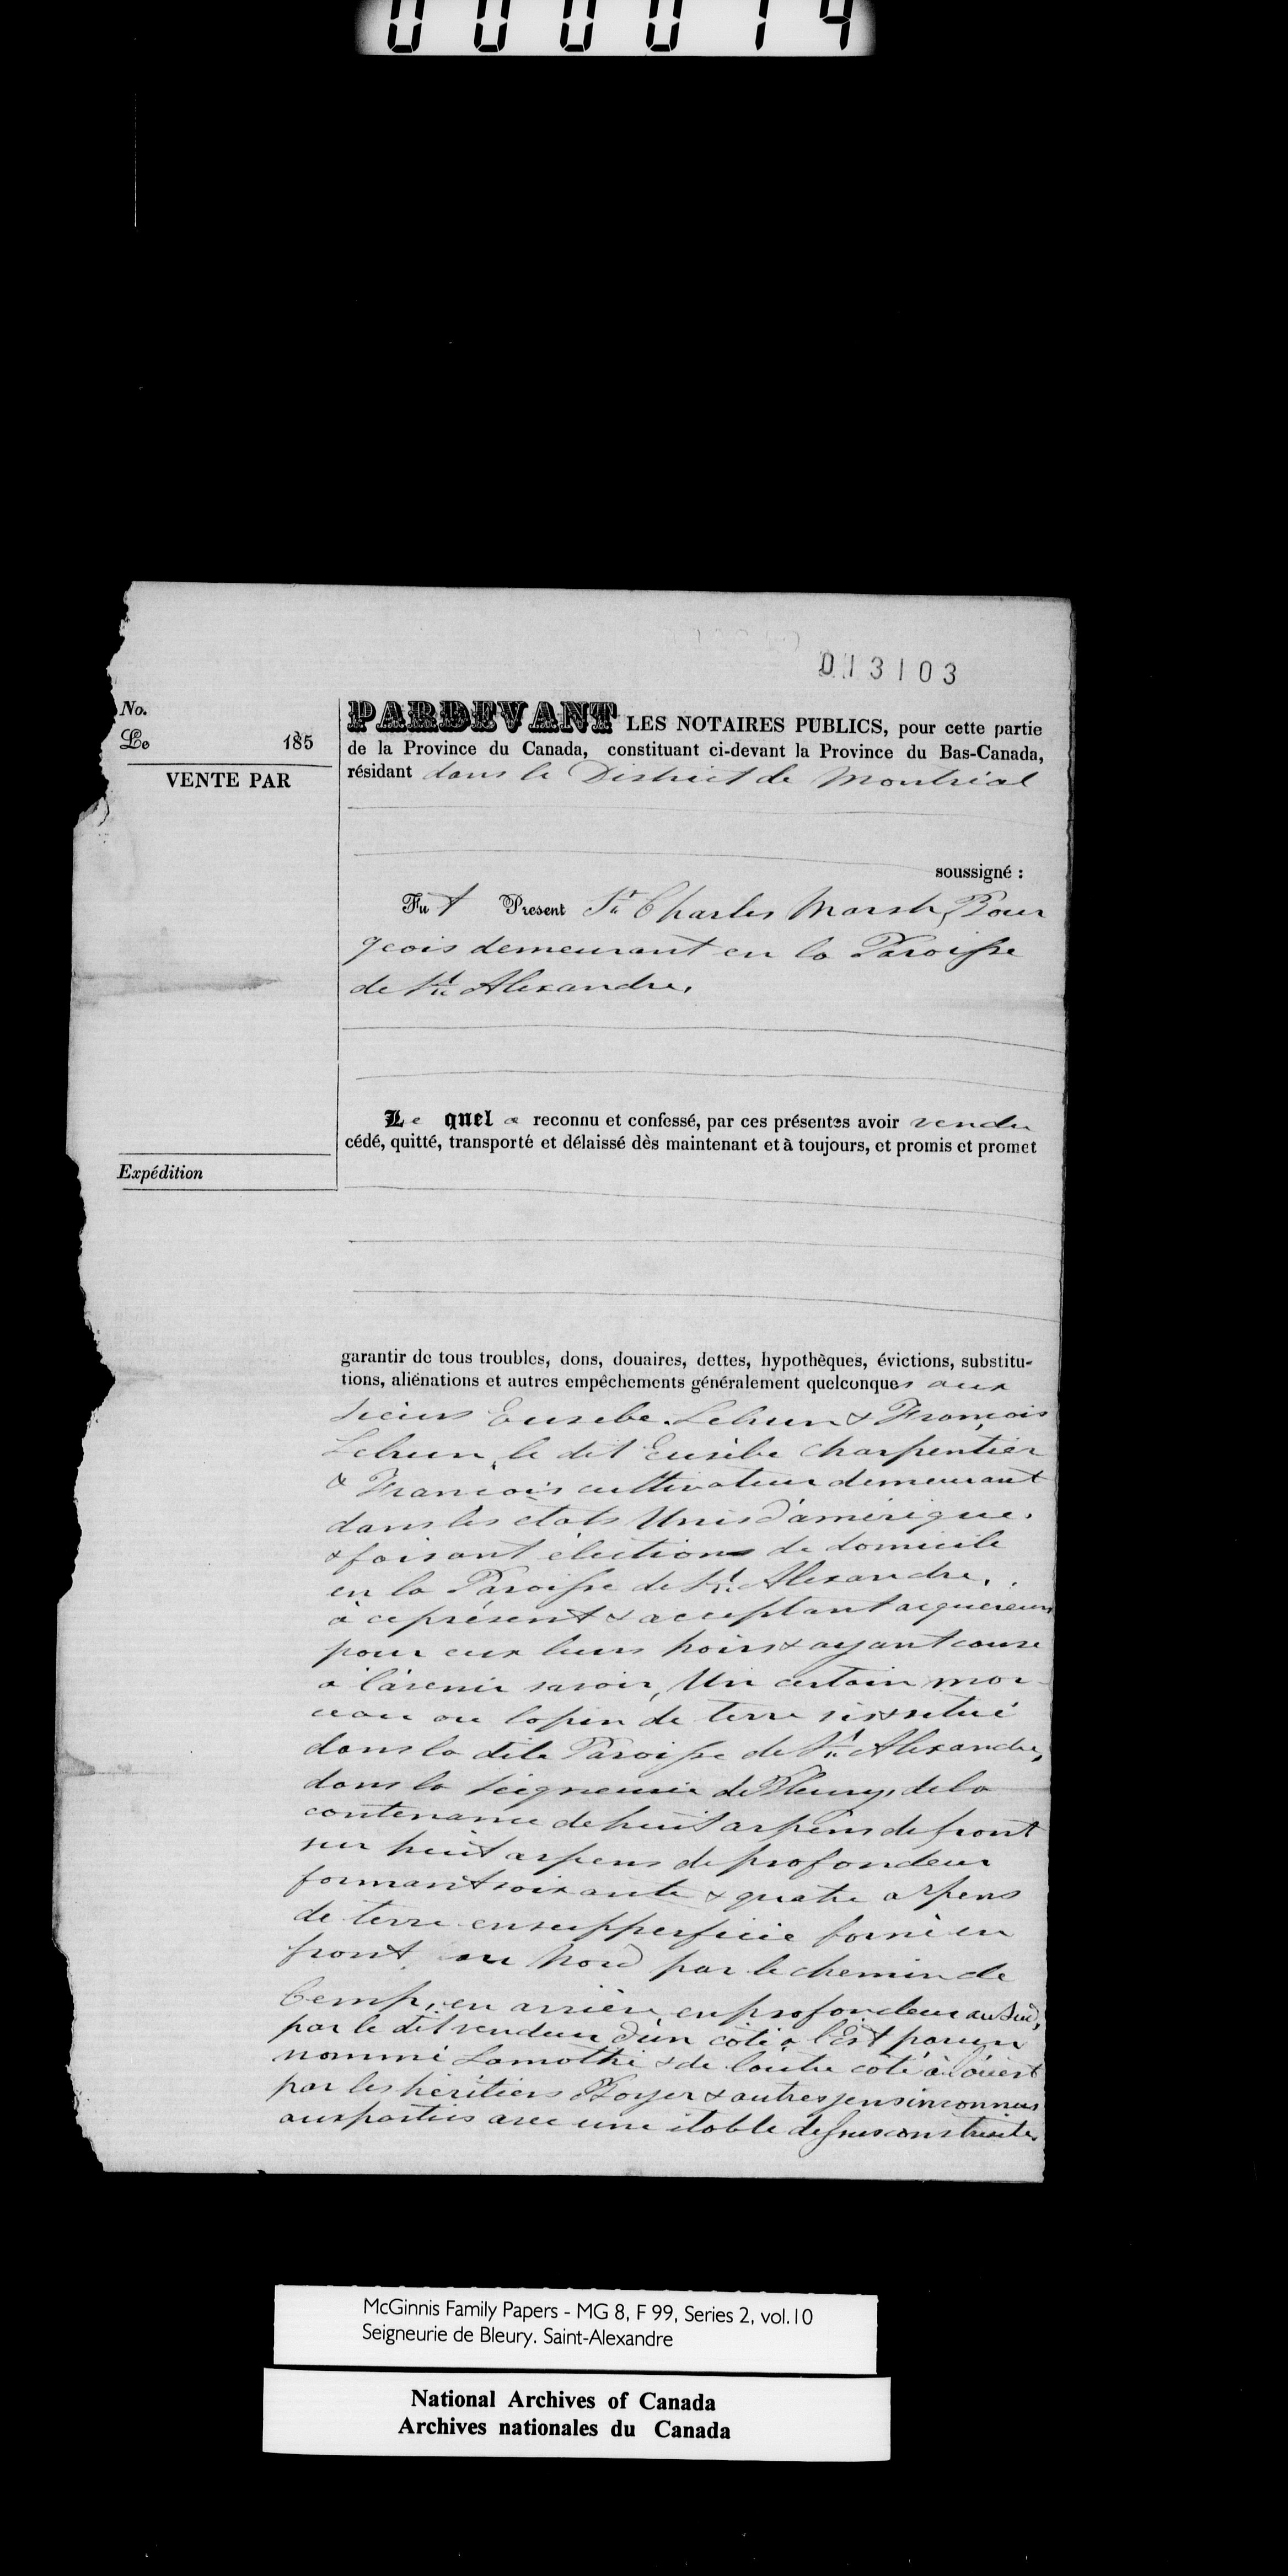 000014
013103
No.
Le 185
VENTE PAR
PARDEVANT LES NOTAIRES PUBLICS, pour cette partie
de la Province du Canada, constituant ci-devant la Province du Bas-Canada,
résidant dans le District de Montréal
soussigné :
Fut Present Sr Charles Marsh, Bour
geois demeurant en la Paroisse
de St Alexandre,
Le quel a reconnu et confessé, par ces présentes avoir vendu
cédé, quitté, transporté et délaissé dès maintenant et à toujours, et promis et promet
Expédition
garantir de tous troubles, dons, douaires, dettes, hypothèques, évictions, substitu-
tions, aliénations et autres empêchements généralement quelconques aux
Sieurs Eusebe Lebrun & François
Lebrun, le dit Eusèbe charpentier
& François cultivateur demeurant
dans les états Unis d'amérique.
& faisant élection de domicile
en la Paroisse de St. Alexandre.
à ce présent & acceptant acquereurs
pour eux leurs hoirs & ayant cause
a l'avenir savoir, Un certain mor
ceau ou lopin de terre sis & situé
dans la dite Paroisse de St. Alexandre,
dans la Seigneurie de Bleury, de la
contenance de huit arpens de front
sur huit arpens de profondeur
formant soixante & quatre arpens
de terre en supperficie borné en
front, au Nord par le chemin de
en arrière en profondeur au Sud,
par le dit vendeur d'un coté a l'Est par un
nommé Lamothe & de l'autre coté à l'ouest
par les héritiers Royer & autres gens inconnus
aux parties avec une étable dessus construite.
McGinnis Family Papers - MG 8, F 99, Series 2, vol.10
Seigneurie de Bleury. Saint-Alexandre
National Archives of Canada
Archives nationales du Canada